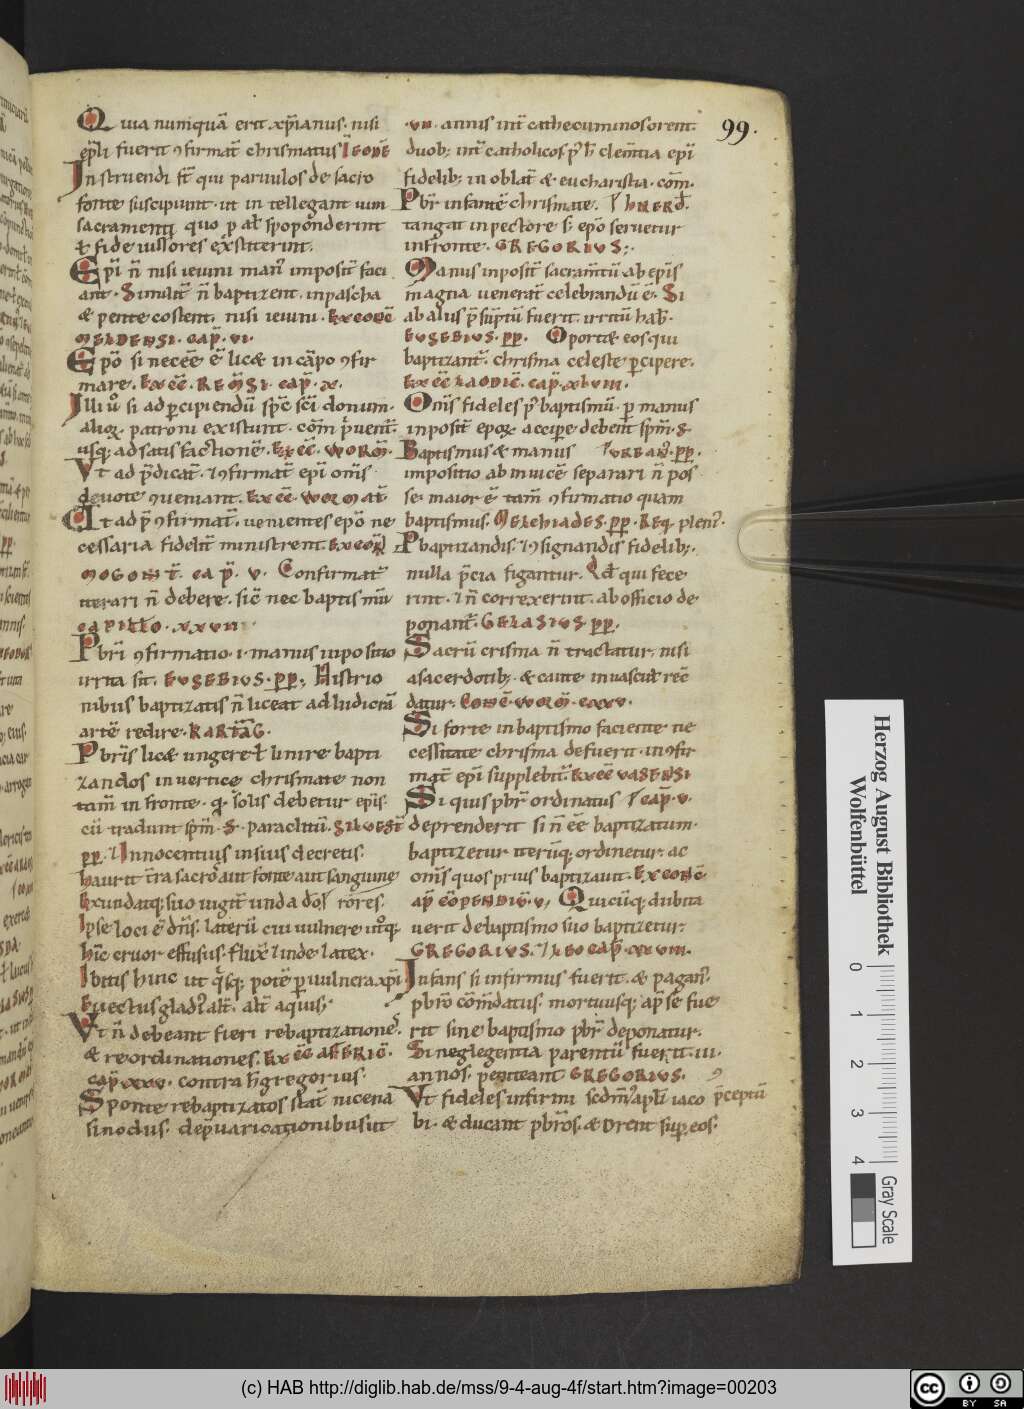 99.
Quia numquā erit xp̄ianus. nisi
ep̄li fuerit ꝯfirmat̄ chrismatus
Instruendi st̄ qui paruulos de sacro
fonte suscipiunt. ut intellegant uim
sacramenti quo p̱ al̄ spoponderint
ł fide iussores exstiterint.
Ep̄i n̄ nisi ieiuni man᷒ imposit̄ faci
ant. Similit̄ n̄ baptizent. in pascha
& pentecosten. nisi ieiuni. EX CONC̄
MELDENSI. CAP̄. VI.
Ep̄o si necēe ē licæ in cāpo ꝯfir
mare. EX CC̄. REM̄SI. CAP̄. X.
Illi u̅ si ad p̱cipiendū sp̄c sc̄i donum.
alioꝝ. patroni existunt. cōm p̄uenit̄.
usq; ad satisfactionē. EX CC̄. WORM̄.
Vt ad p̄dicat̄. ⁊ ꝯfirmat̄ ep̄i om̄s
deuote ꝯueniant. EX CC̄. WORMAT̄.
Et ad p̄ ꝯfirmat̄. uenientes ep̄o ne
cessaria fidelit̄ ministrent. EX CON
MOGONT̄. CAP̄. V. Confirmat̄
iterari n̄ debere. sic̄ nec baptismū
CAPITLO. XXVII
Pbr̄i ꝯfirmatio. i. manus inpositio
irrita sit. EUSEBIUS. PP. Histrio
nibus baptizatis n̄ liceat ad ludicrā
artē redire. KARTAG.
Pbr̄is licæ ungere ł linire bapti
zandos in uertice chrismate non
tam̄ in fronte. q̱ solis debetur ep̄is.
cū tradunt sp̄m. S. paraclitū. SILVEST̄
PP. Innocentius in suis decretis.
haurit t̄ra sacro aut fonte aut sanguine
Ipse loci ē dn̄s. laterū cui uulnere utq̱
hi᷒c cruor effusus. flux̄ ⁊ inde latex.
Ibitis hinc ut q̱sq; potē p̱ uulnera. xp̄i
Euectus gladi᷒ alt̄. alt̄ aquis;
Vt n̄ debeant fieri rebaptizationes
& reordinationes. EX CC̄ AFRIC̄.
CAP̄ XXXV. contra h̄ gregorius.
Sponte rebaptizatos stat̄ nicena
sinodus. depuaricationibus ut
.VII. annis int̄ cathecuminos orent.
duob; int̄ catholicos p̄ h̄ clem̄tia ep̄i
fidelib; in oblat̄ & eucharistia. com̄.
Pbr̄ infantē chrismate.
tangat in pectore s; ep̄o seruetur
in fronte. GREGORIUS;
Manus inposit̄ sacram̄tū ab ep̄is
magna uenerat̄ celebrandū ē. Si
ab alius p̄sūptū fuerit. irritū hab̄.
EUSEBIUS. PP. Oportæ eos qui
baptizant̄. chrisma celeste p̱cipere.
EX CC̄ LAODIC̄. CAP̄. XLVIII.
Om̄s fideles p̄ baptismū. p̱ manus
inposit̄ epoꝝ accipe debent sp̄m. S.
Baptismus & manus URBAN᷒. PP.
impositio ab inuicē separari n̄ pos
se. maior ē tam̄ ꝯfirmatio quam
baptismus. MELCHIADES. PP. Req. pleni᷒.
P baptizandis. ⁊ ꝯsignandis fidelib;
nulla p̄cia figantur. Qd̄ qui fece
rint. ⁊ n̄ correxerint. ab officio de
ponant̄. GELASIUS. PP.
Sacrū crisma n̄ tractatur. nisi
a sacerdotib;. & caute in uasculæ rec̄
datur. CONC̄. WORM̄. C. XXV.
Si forte in baptismo faciente ne
cessitate chrisma defuerit. in ꝯfir
mat̄ ep̄i supplebit̄. EX CC̄ VASENSI
Si quis pbr̄ ordinatus CAP̄. V.
deprenderit si n̄ ēe baptizatum.
baptizetur iterūq; ordinetur. ac
om̄s quos prius baptizauit. EX CONC̄
Quicūq; dubita
uerit de baptismo suo baptizetur.
GREGORIUS. ⁊ LEO CAP̄. XXVIII.
Infans si infirmus fuerit. & pagan᷒.
pbr̄o cōm̄datus. mortuusq; ap̄ se fue
rit sine baptismo pbr̄ deponatur.
Si neglegentia parentū fuerit. III.
annos. peniteant GREGORIUS.
Vt fideles infirmi scd̄m apl̄i iaco p̄ceptū
bi. & ducant pbr̄os. & orent sup̱ eos.
Herzog August Bibliothek
Wolfenbüttel
0 1 2 3 4
Gray Scale
(c) HAB http://diglib.hab.de/mss/9-4-aug-4f/start.htm?image=00203
cc BY SA